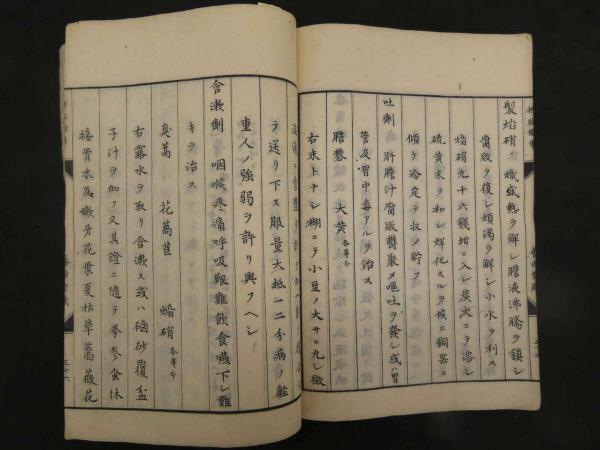 製焔硝 熾盛熱ヲ解シ膽液沸騰ヲ鎮シ
腐敗ヲ復シ煩渇ヲ解シ小水ヲ利ス
焔硝九十六錢坩ニ入レ炭火ニテ溶シ
硫黄末ヲ和シ烊化スルヲ候ヒ銅器ニ
傾ケ冷定テ収メ貯フ
吐劑 肝膽汁腐敗鬱聚メ嘔吐ヲ發シ或ハ胃
管及胃中毒アルヲ治ス
膽礬 大黄 各等分
右末トナシ糊ニテ小豆ノ大サニ丸シ微
テ送リ下ス服量大抵一二分病ノ軽
重人ノ強弱ヲ許リ與フヘシ
含漱劑 咽喉疼痛呼吸艱難飲食嚥下シ難
キヲ治ス
臭萵 花萵苣 焔硝 各等分
右露水ヲ取リ含漱ス或ハ硇砂覆盆
子汁ヲ加フ又其證ニ隨テ拳参蚤休
接骨木及嫩牙花葉夏枯草薔薇花